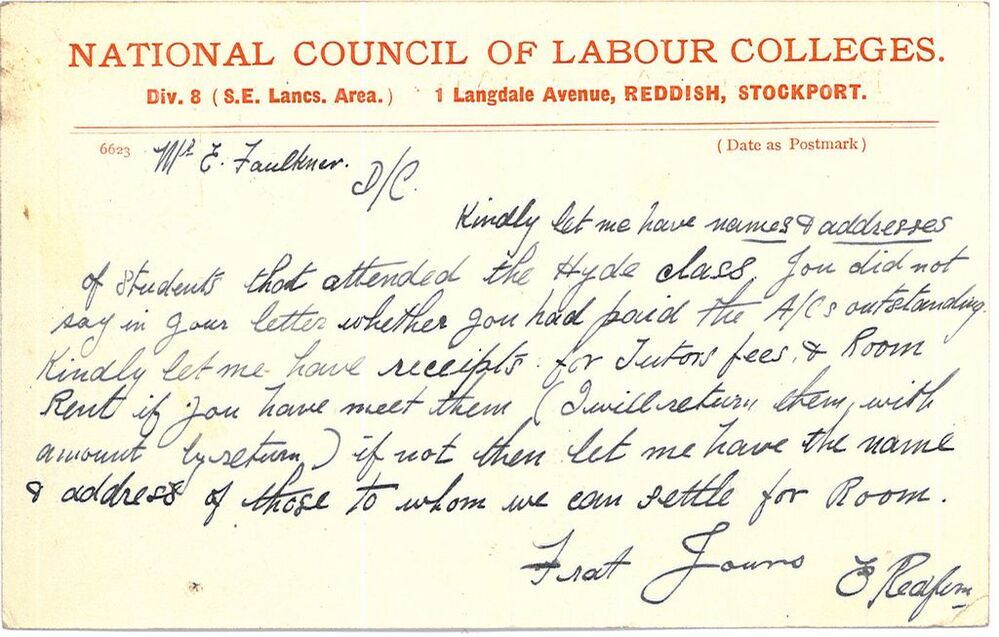 NATIONAL COUNCIL OF LABOUR COLLEGES.
Div. 8 (S.E. Lancs. Area.) 1 Langdale Avenue, REDDISH, STOCKPORT.
6623 (Date as Postmark)
Mr E. Faulkner.
D/C.
Kindly let me have names & addresses
of students that attended the Hyde class. You did not
say in your letter whether you had paid the A/Cs outstanding.
Kindly let me have receipts for Tutors fees & Room
Rent if you have meet them (I will return them, with
amount by return) if not then let me have the name
& address of those to whom we can settle for Room.
Frat Yours
E Redfern